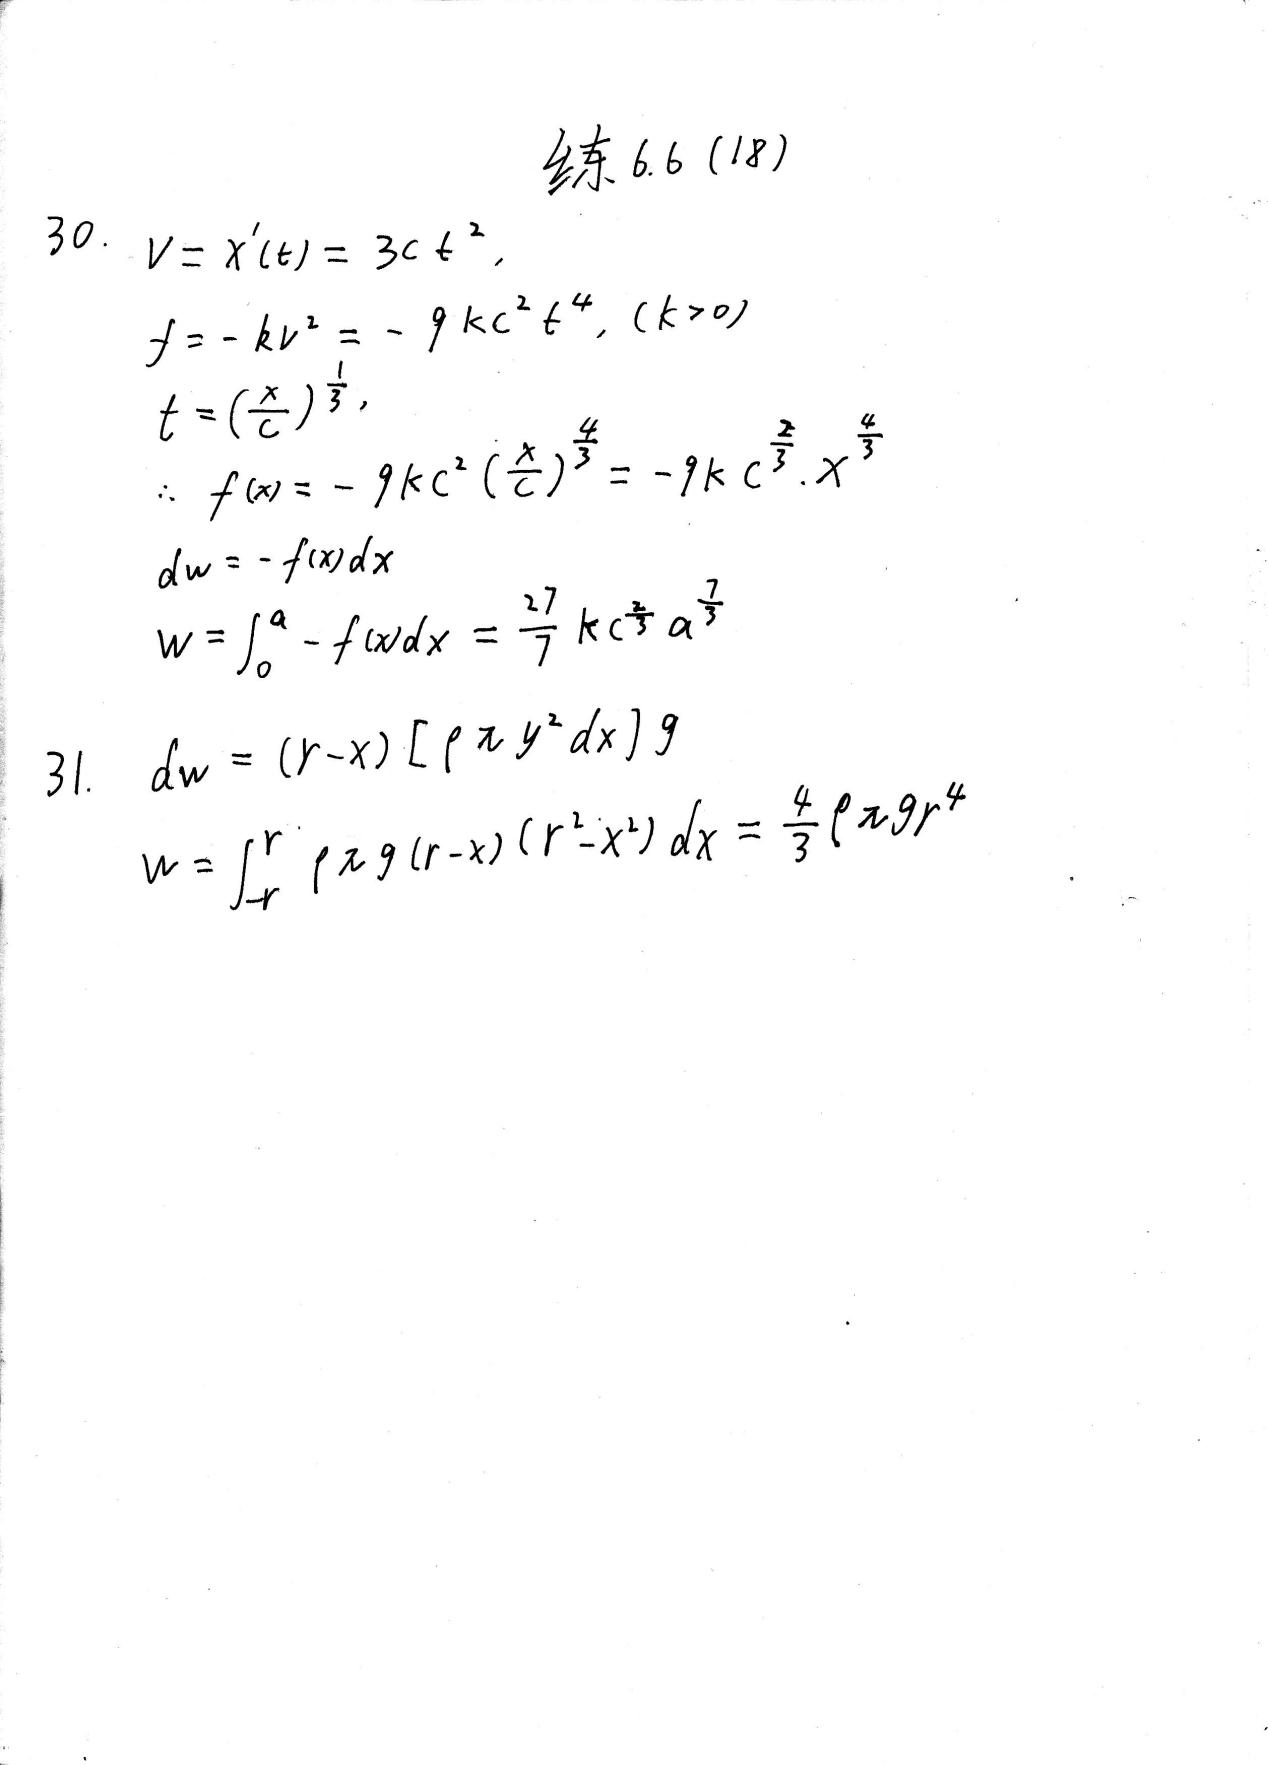 练 6.6 (18)
30. V = x'(t) = 3ct²,
f = -kv² = -9kc²t⁴, (k>0)
t = (x/c)^(1/3),
∴ f(x) = -9kc²(x/c)^(4/3) = -9kc^(2/3)·x^(4/3)
dw = -f(x)dx
w = ∫₀ᵃ -f(x)dx = 27/7 kc^(2/3) a^(7/3)
31. dw = (r-x)[ρπy²dx]g
w = ∫₋ᵣʳ ρπg(r-x)(r²-x²)dx = 4/3 ρπgr⁴